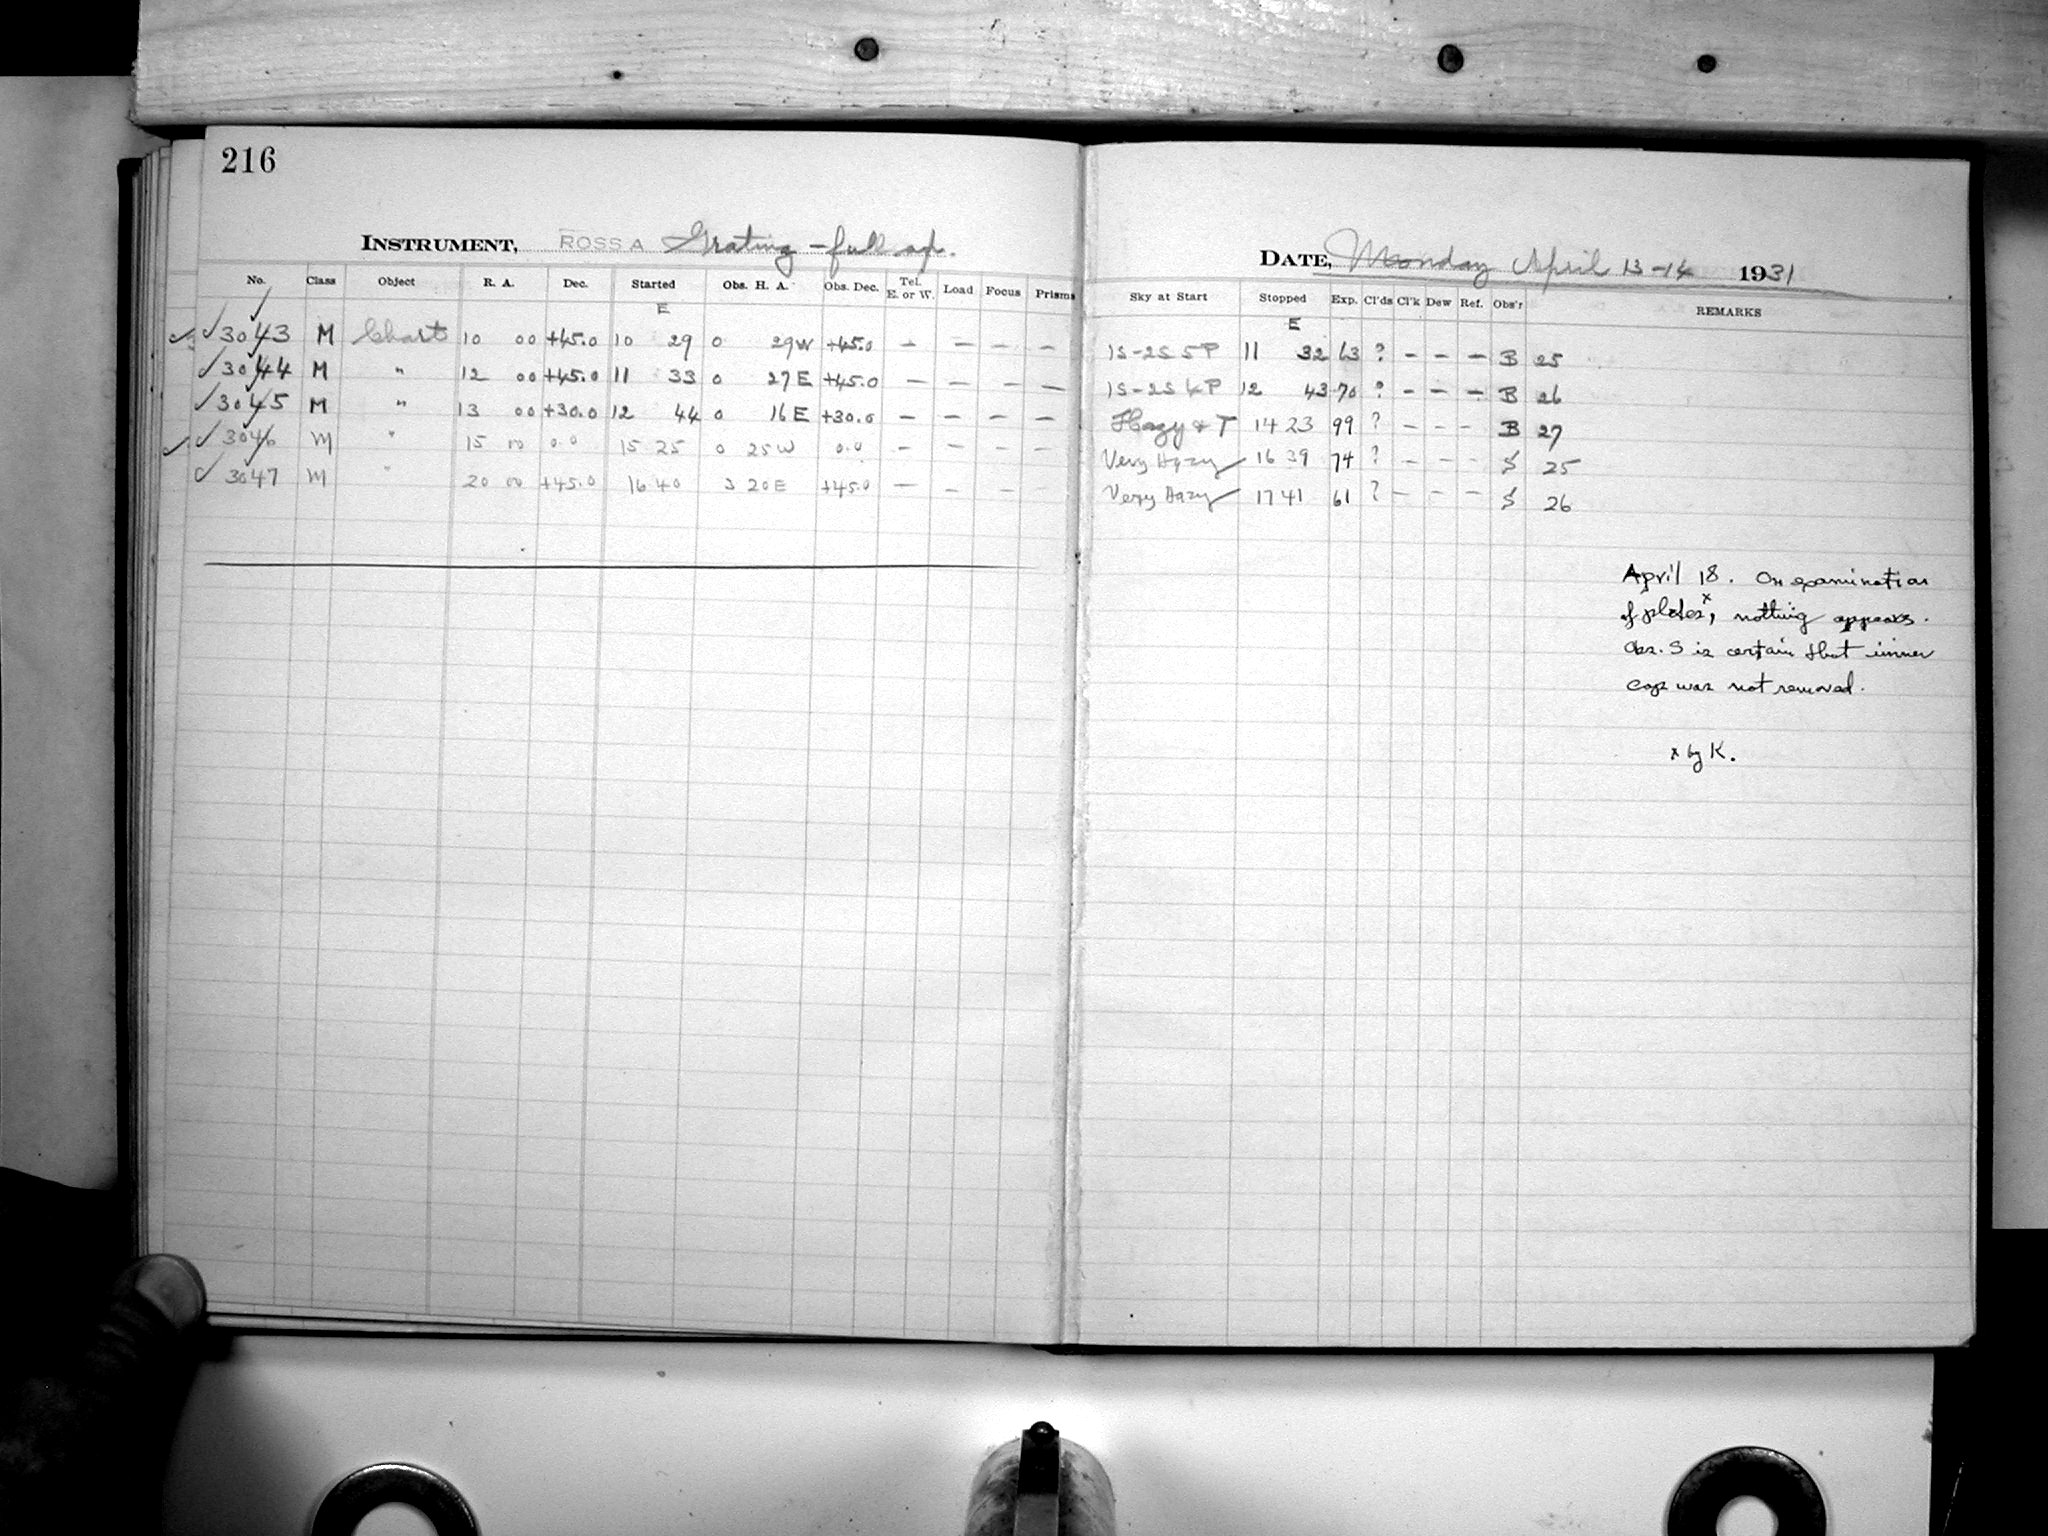 216
INSTRUMENT, ROSS A Grating - full ap.
No. Class Object R. A. Dec. Started Obs. H. A. Obs. Dec. Tel. E. or W. Load Focus Prisms
E
3043 M Chart 10 00 +45.0 10 29 0 29W +45.0 — — — —
3044 M " 12 00 +45.0 11 33 0 27E +45.0 — — — —
3045 M " 13 00 +30.0 12 44 0 16E +30.0 — — — —
3046 M " 15 00 0.0 15 25 0 25W 0.0 — — — —
3047 M " 20 00 +45.0 16 40 3 20E +45.0 — — — —
DATE, Monday April 13-14 1931
Sky at Start Stopped Exp. Cl'ds Cl'k Dew Ref. Obs'r REMARKS
E
1S-2S 5P 11 32 63 ? — — — B 25
1S-2S 4P 12 43 70 ? — — — B 26
Hazy & T 14 23 99 ? — — — B 27
Very Hazy 16 39 74 ? — — — S 25
Very Hazy 17 41 61 ? — — — S 26
April 18. On examination
of plates x, nothing appears.
Obs. S is certain that inner
cap was not removed.
x by K.